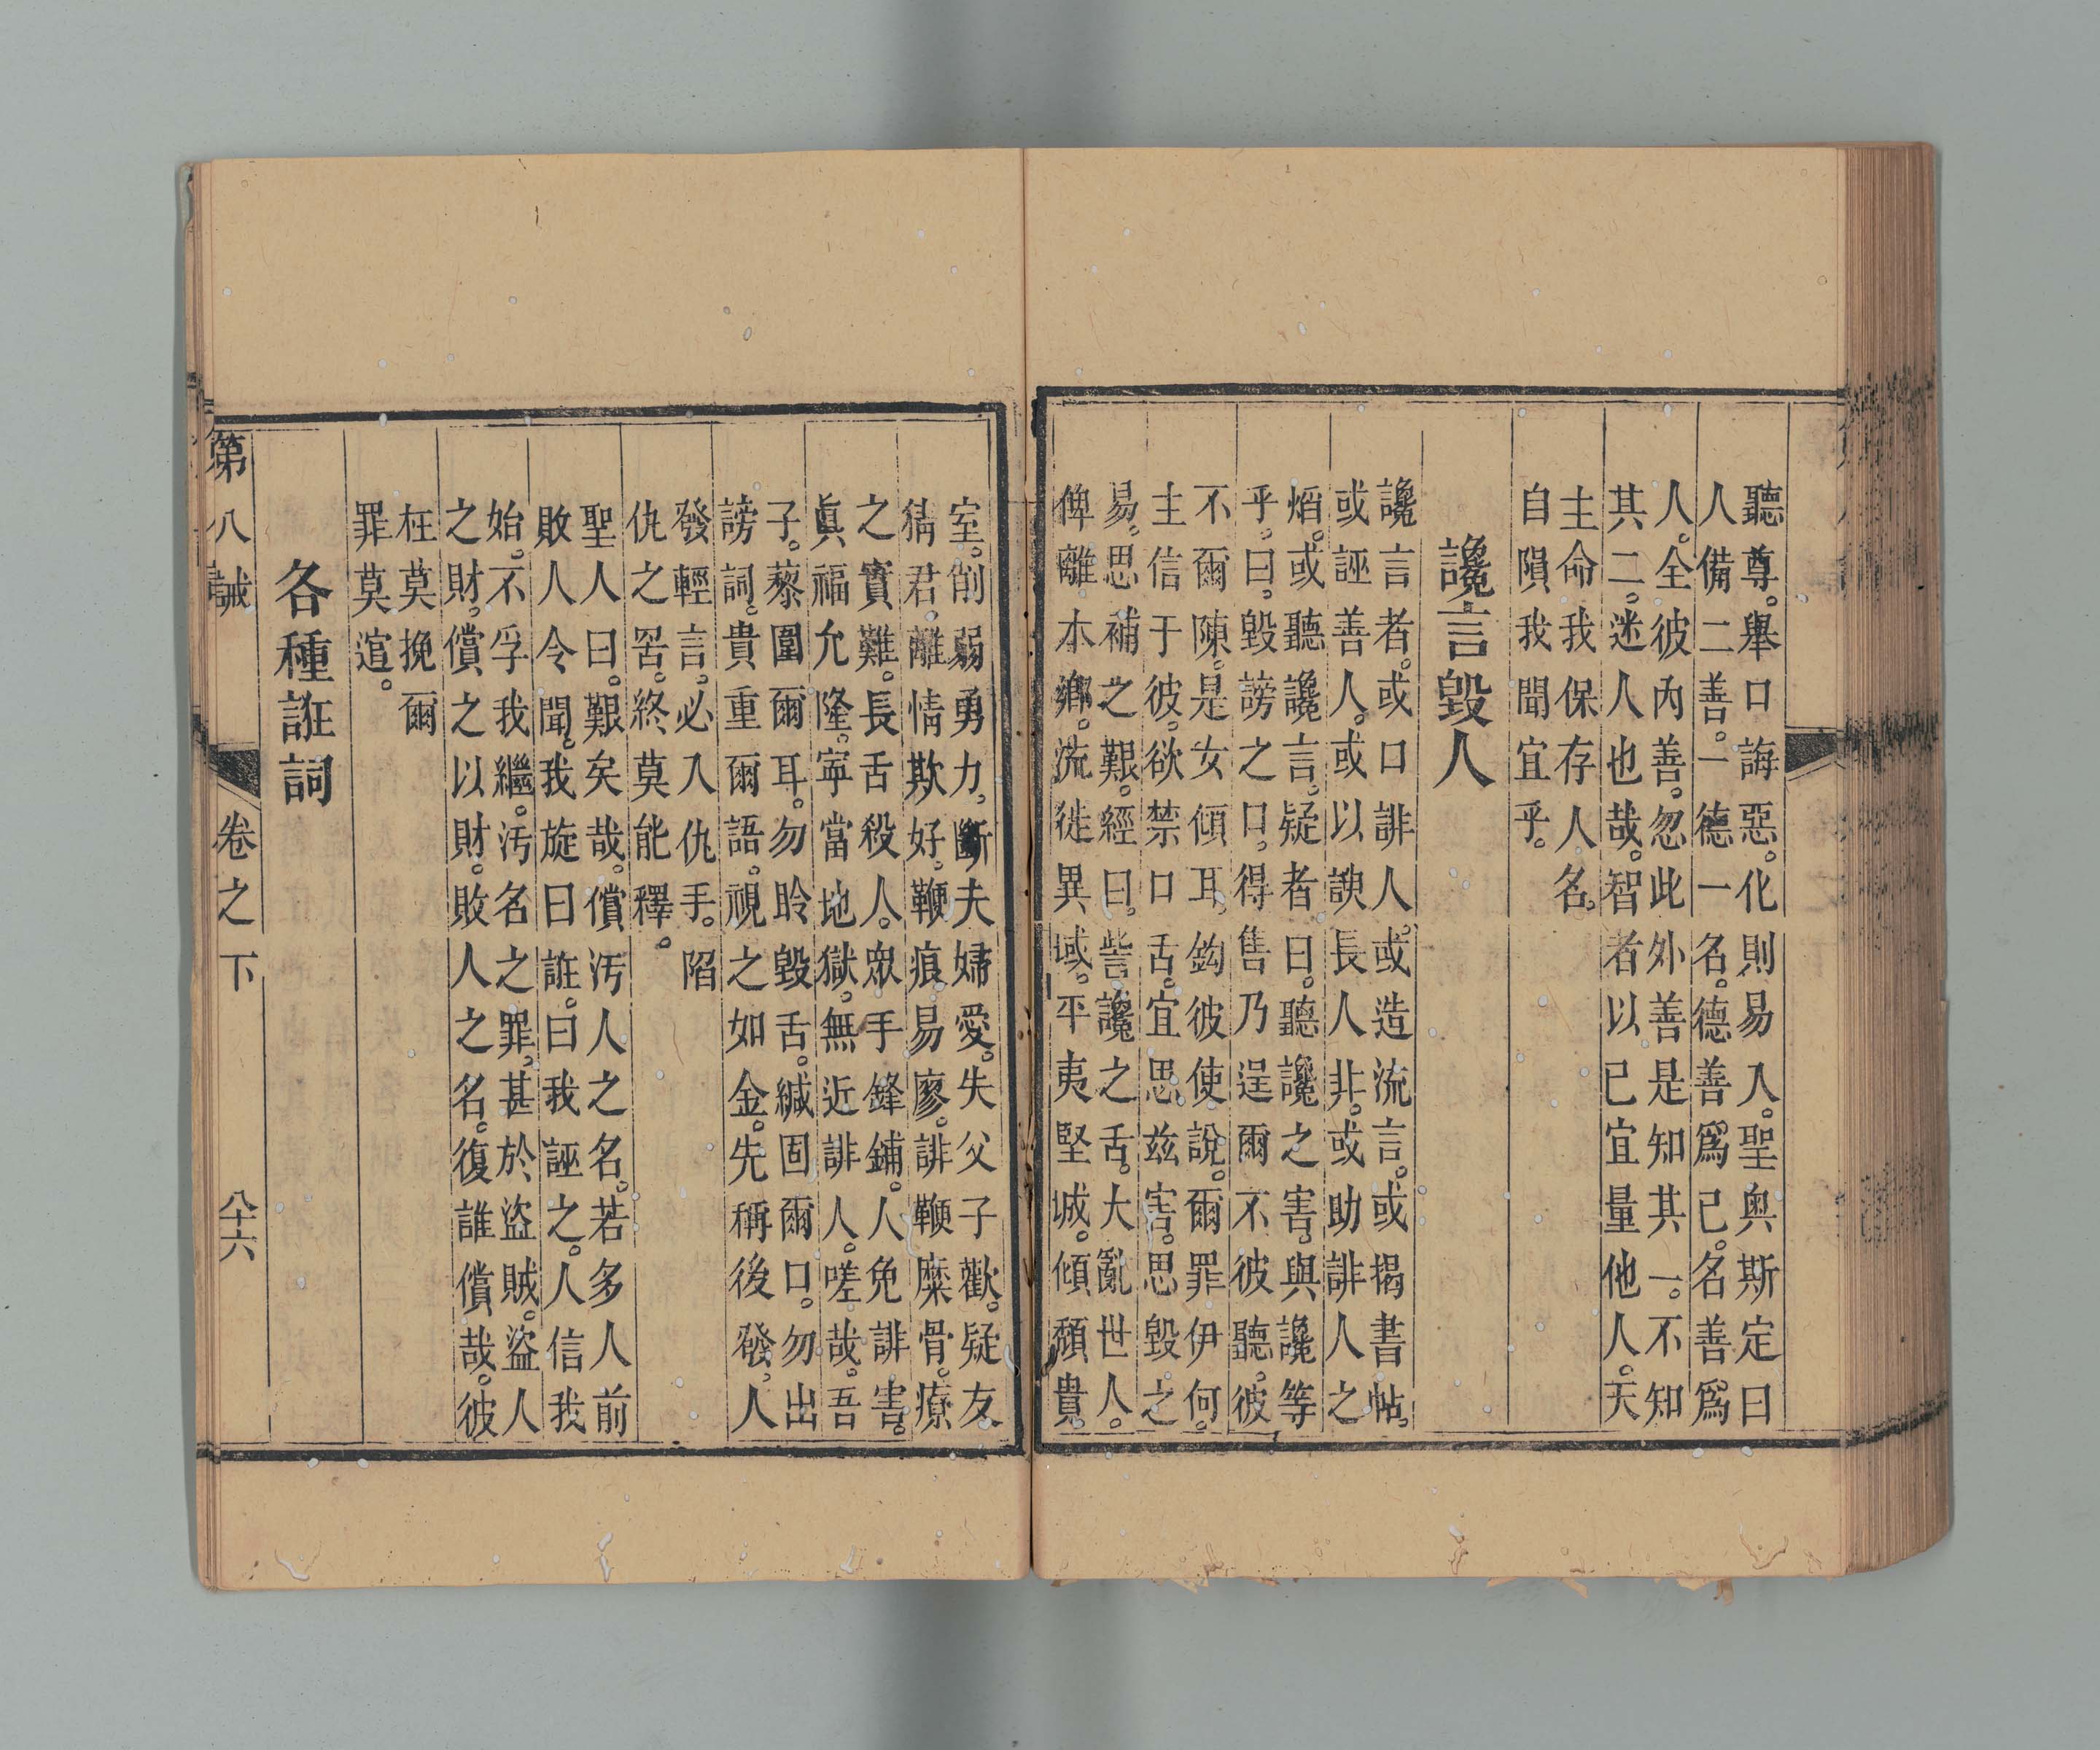 聽尊。舉口誨惡。化則易入。聖奧斯定曰
人備二善。一德一名。德善爲己。名善爲
人。全彼內善。忽此外善。是知其一。不知
其二。迷人也哉。智者以已宜量他人。天
主命我保存人名。
自隕我聞宜乎。
讒言毀人
讒言者。或口誹人。或造流言。或揭書帖。
或誣善人。或以諛長人非。或助誹人之
熖。或聽讒言。疑者曰。聽讒之害。與讒等
乎。曰。毀謗之口。得售乃逞爾不彼聽。彼
不爾陳。是女傾耳。鈎彼使說。爾罪伊何。
主信于彼。欲禁口舌。宜思玆害。思毀之
易。思補之艱。經曰。訾讒之舌。大亂世人。
俾離本鄉。流徙異域。平夷堅城。傾頹貴
室。削弱勇力。斷夫婦愛。失父子歡。疑友
猜君。離情欺好。鞭痕易廖。誹鞭糜骨。療
之實難。長舌殺人。眾手鋒鋪。人免誹害。
眞福允隆。寧當地獄。無近誹人。嗟哉。吾
子。藜圍爾耳。勿聆毀舌。緘固爾口。勿出
謗詞。貴重爾語。視之如金。先稱後發。人
發輕言。必入仇手。陷
仇之罟。終莫能釋。
聖人曰。艱矣哉。償汚人之名。若多人前
敗人令聞。我旋曰誑。曰我誣之。人信我
始。不孚我繼。汚名之罪。甚於盜賊。盜人
之財。償之以財。敗人之名。復誰償哉。彼
枉莫挽爾
罪莫逭。
各種誑詞
第八誡
卷之下
八十六